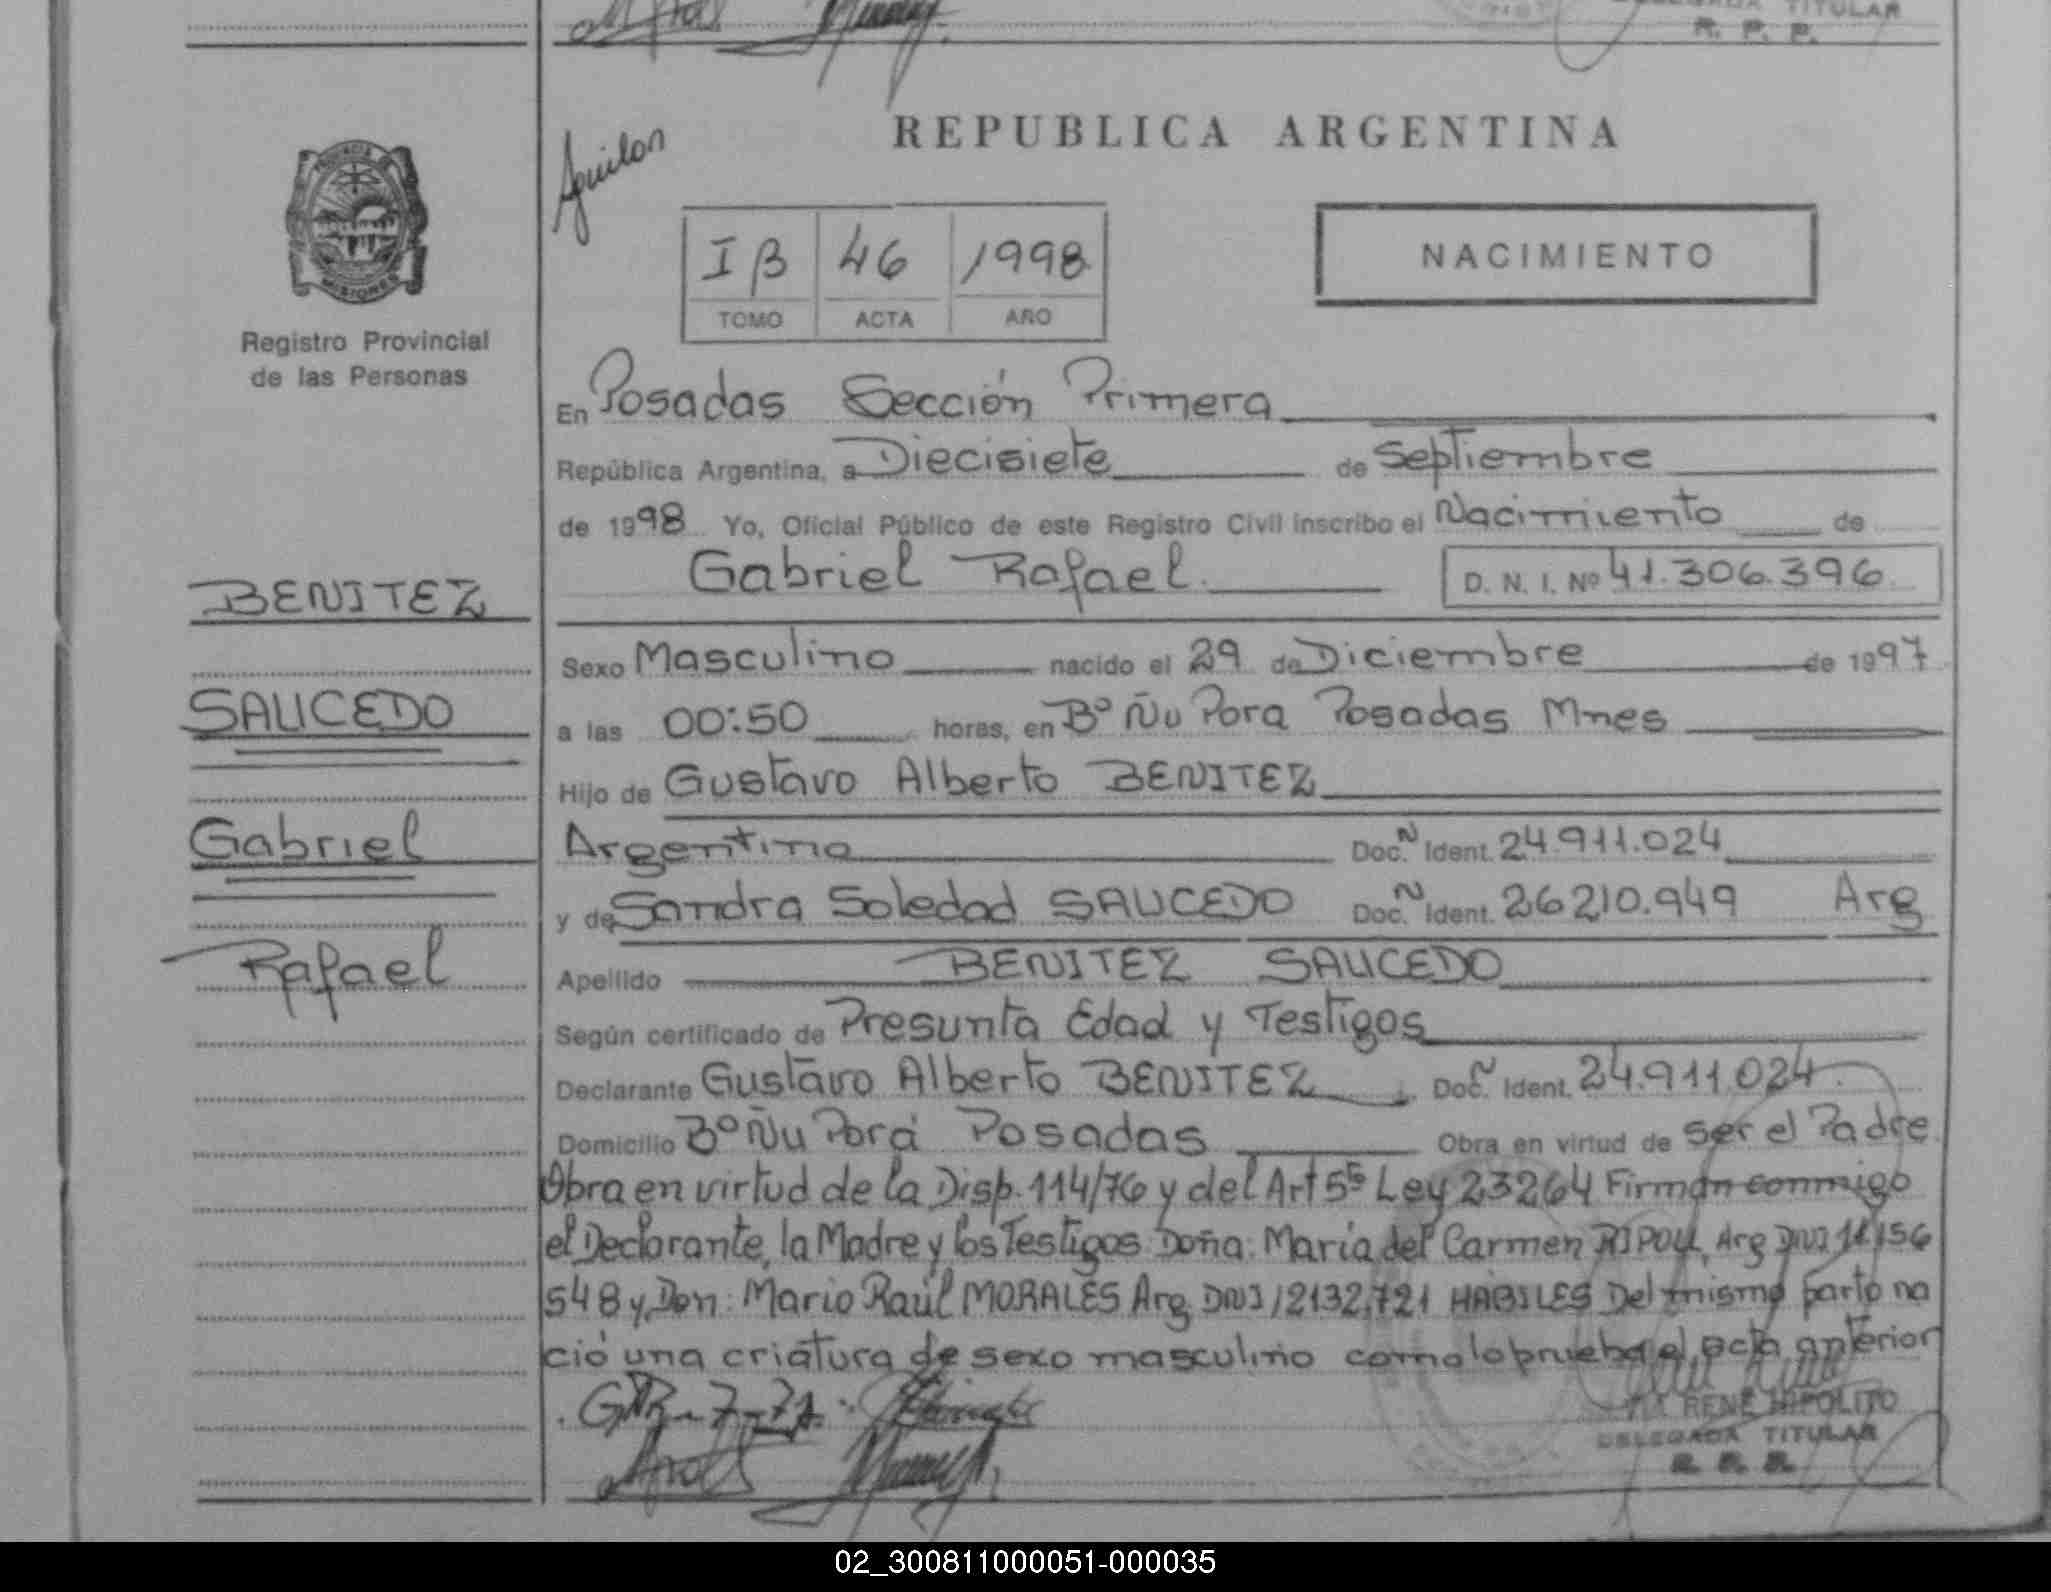 TITULAR
R. P. P.
PROVINCIA DE
MISIONES
Registro Provincial
de las Personas
BENITEZ
SAUCEDO
Gabriel
Rafael
REPUBLICA ARGENTINA
I B 46 1998
TOMO ACTA AÑO
NACIMIENTO
En Posadas Sección Primera
República Argentina, a Diecisiete de Septiembre
de 1998 Yo, Oficial Público de este Registro Civil inscribo el Nacimiento de
Gabriel Rafael. D. N. I. Nº 41.306.396
Sexo Masculino nacido el 29 de Diciembre de 1997
a las 00:50 horas, en Bº Ñu Pora Posadas Mnes
Hijo de Gustavo Alberto BENITEZ
Argentino Doc. Ident. 24.911.024
y de Sandra Soledad SAUCEDO Doc. Ident. 26210.949 Arg
Apellido BENITEZ SAUCEDO
Según certificado de Presunta Edad y Testigos
Declarante Gustavo Alberto BENITEZ Doc. Ident. 24.911.024
Domicilio Bº Ñu Porá Posadas Obra en virtud de ser el Padre
Obra en virtud de la Disp. 114/76 y del Art 5º Ley 23264 Firman conmigo
el Declarante, la Madre y los Testigos Doña: María del Carmen RIPOLL, Arg DNI 11.156
548 y Don: Mario Raúl MORALES Arg DNI 12132.721 HABILES Del mismo parto na
ció una criatura de sexo masculino como lo prueba el acta anterior
RENE HIPOLITO
DELEGADA TITULAR
R. P. P.
02_300811000051-000035